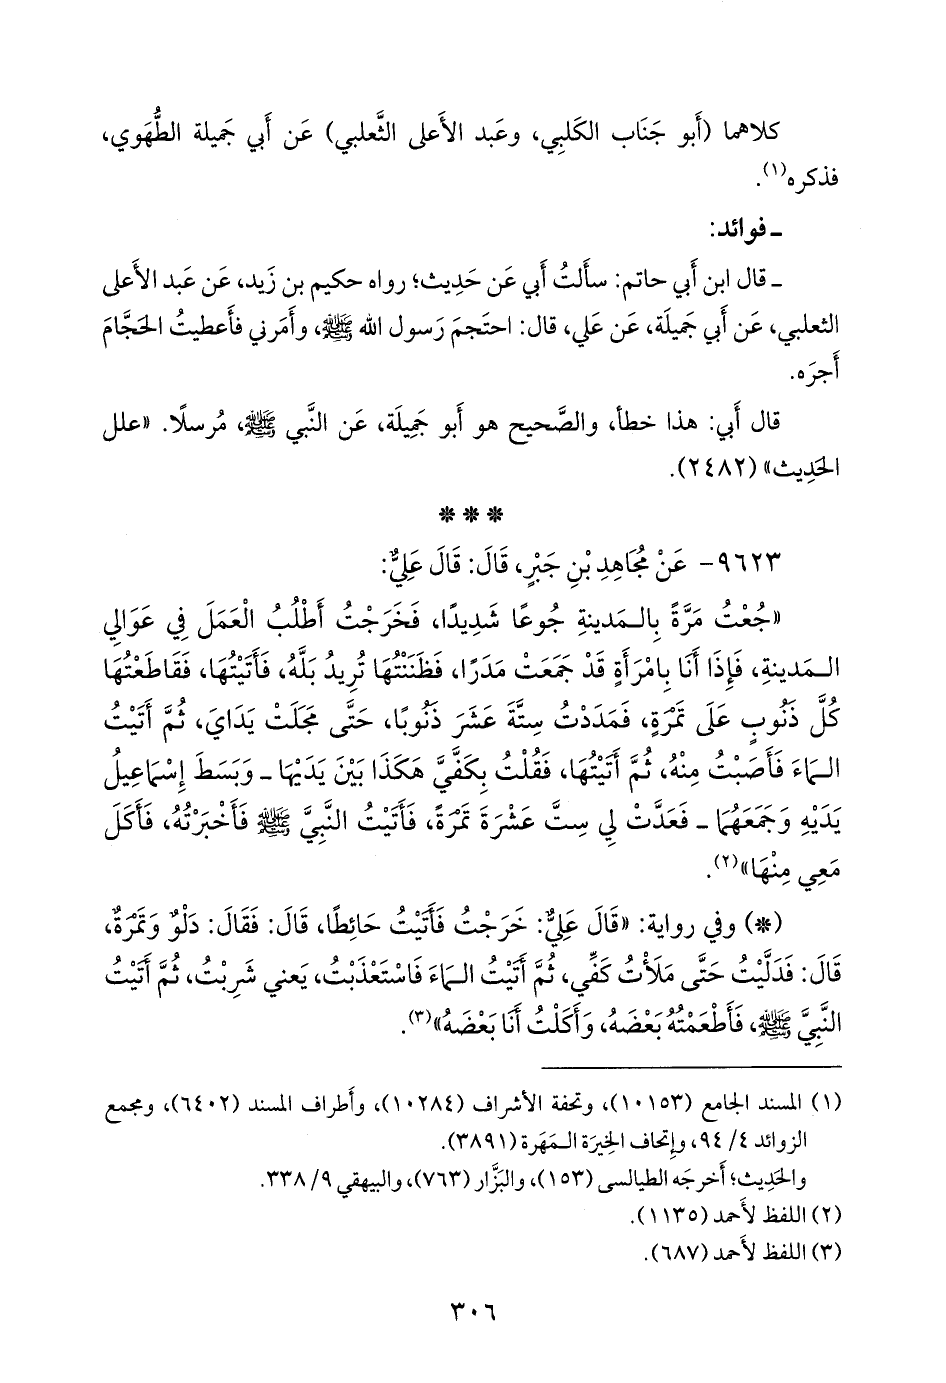 كلاهما (أَبو جَنَاب الكَلبِي، وعَبد الأَعلى الثَّعلبي) عَن أَبي جَميلة الطُّهَوي،
فذكره(١).
ـ فوائد:
ـ قال ابن أَبي حاتم: سأَلتُ أَبي عَن حَدِيث؛ رواه حكيم بن زَيد، عَن عَبد الأَعلى
الثعلبي، عَن أَبي جَميلَة، عَن علي، قال: احتَجمَ رَسول الله ﷺ، وأَمَرني فأَعطيتُ الحَجَّامَ
أَجرَه.
قال أَبي: هذا خطأ، والصَّحيح هو أَبو جَمِيلَة، عَن النَّبي ﷺ، مُرسلًا. «علل
الحَدِيث» (٢٤٨٢).
* * *
٩٦٢٣- عَنْ مُجَاهِدِ بْنِ جَبْرٍ، قَالَ: قَالَ عَلِيٌّ:
«جُعْتُ مَرَّةً بِالـمَدينةِ جُوعًا شَدِيدًا، فَخَرَجْتُ أَطْلُبُ الْعَمَلَ فِي عَوَالي
الـمَدينةِ، فَإِذَا أَنَا بِامْرَأَةٍ قَدْ جَمَعَتْ مَدَرًا، فَظَنَنْتُهَا تُرِيدُ بَلَّهُ، فَأَتَيْتُهَا، فَقَاطَعْتُهَا
كُلَّ ذَنُوبٍ عَلَى تَمْرَةٍ، فَمَدَدْتُ سِتَّةَ عَشَرَ ذَنُوبًا، حَتَّى مَجَلَتْ يَدَايَ، ثُمَّ أَتَيْتُ
الـمَاءَ فَأَصَبْتُ مِنْهُ، ثُمَّ أَتَيْتُهَا، فَقُلْتُ بِكَفَّيَّ هَكَذَا بَيْنَ يَدَيْهَا ـ وَبَسَطَ إِسْمَاعِيلُ
يَدَيْهِ وَجَمَعَهُمَا ـ فَعَدَّتْ لِي سِتَّ عَشْرَةَ تَمْرَةً، فَأَتَيْتُ النَّبِيَّ ﷺ فَأَخْبَرْتُهُ، فَأَكَلَ
مَعِي مِنْهَا»(٢).
(*) وفي رواية: «قَالَ عَلِيٌّ: خَرَجْتُ فَأَتَيْتُ حَائِطًا، قَالَ: فَقَالَ: دَلْوٌ وَتَمْرَةٌ،
قَالَ: فَدَلَّيْتُ حَتَّى مَلَأْتُ كَفِّي، ثُمَّ أَتَيْتُ الـمَاءَ فَاسْتَعْذَبْتُ، يَعني شَرِبْتُ، ثُمَّ أَتَيْتُ
النَّبِيَّ ﷺ، فَأَطْعَمْتُهُ بَعْضَهُ، وَأَكَلْتُ أَنَا بَعْضَهُ»(٣).
(١) المسند الجامع (١٠١٥٣)، وتحفة الأشراف (١٠٢٨٤)، وأَطراف المسند (٦٤٠٢)، ومجمع
الزوائد ٤/ ٩٤، وإتحاف الخِيرَة الـمَهَرة (٣٨٩١).
والحَدِيث؛ أَخرجَه الطيالسى (١٥٣)، والبَزَّار (٧٦٣)، والبيهقي ٩/ ٣٣٨.
(٢) اللفظ لأَحمد (١١٣٥).
(٣) اللفظ لأَحمد (٦٨٧).
٣٠٦